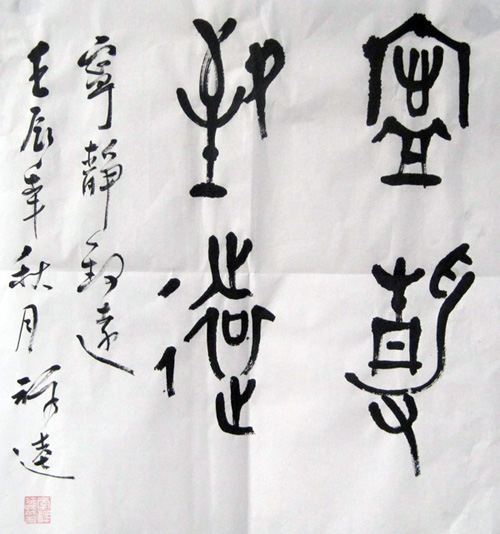 寧靜
致遠
寧靜致遠
壬辰年秋月